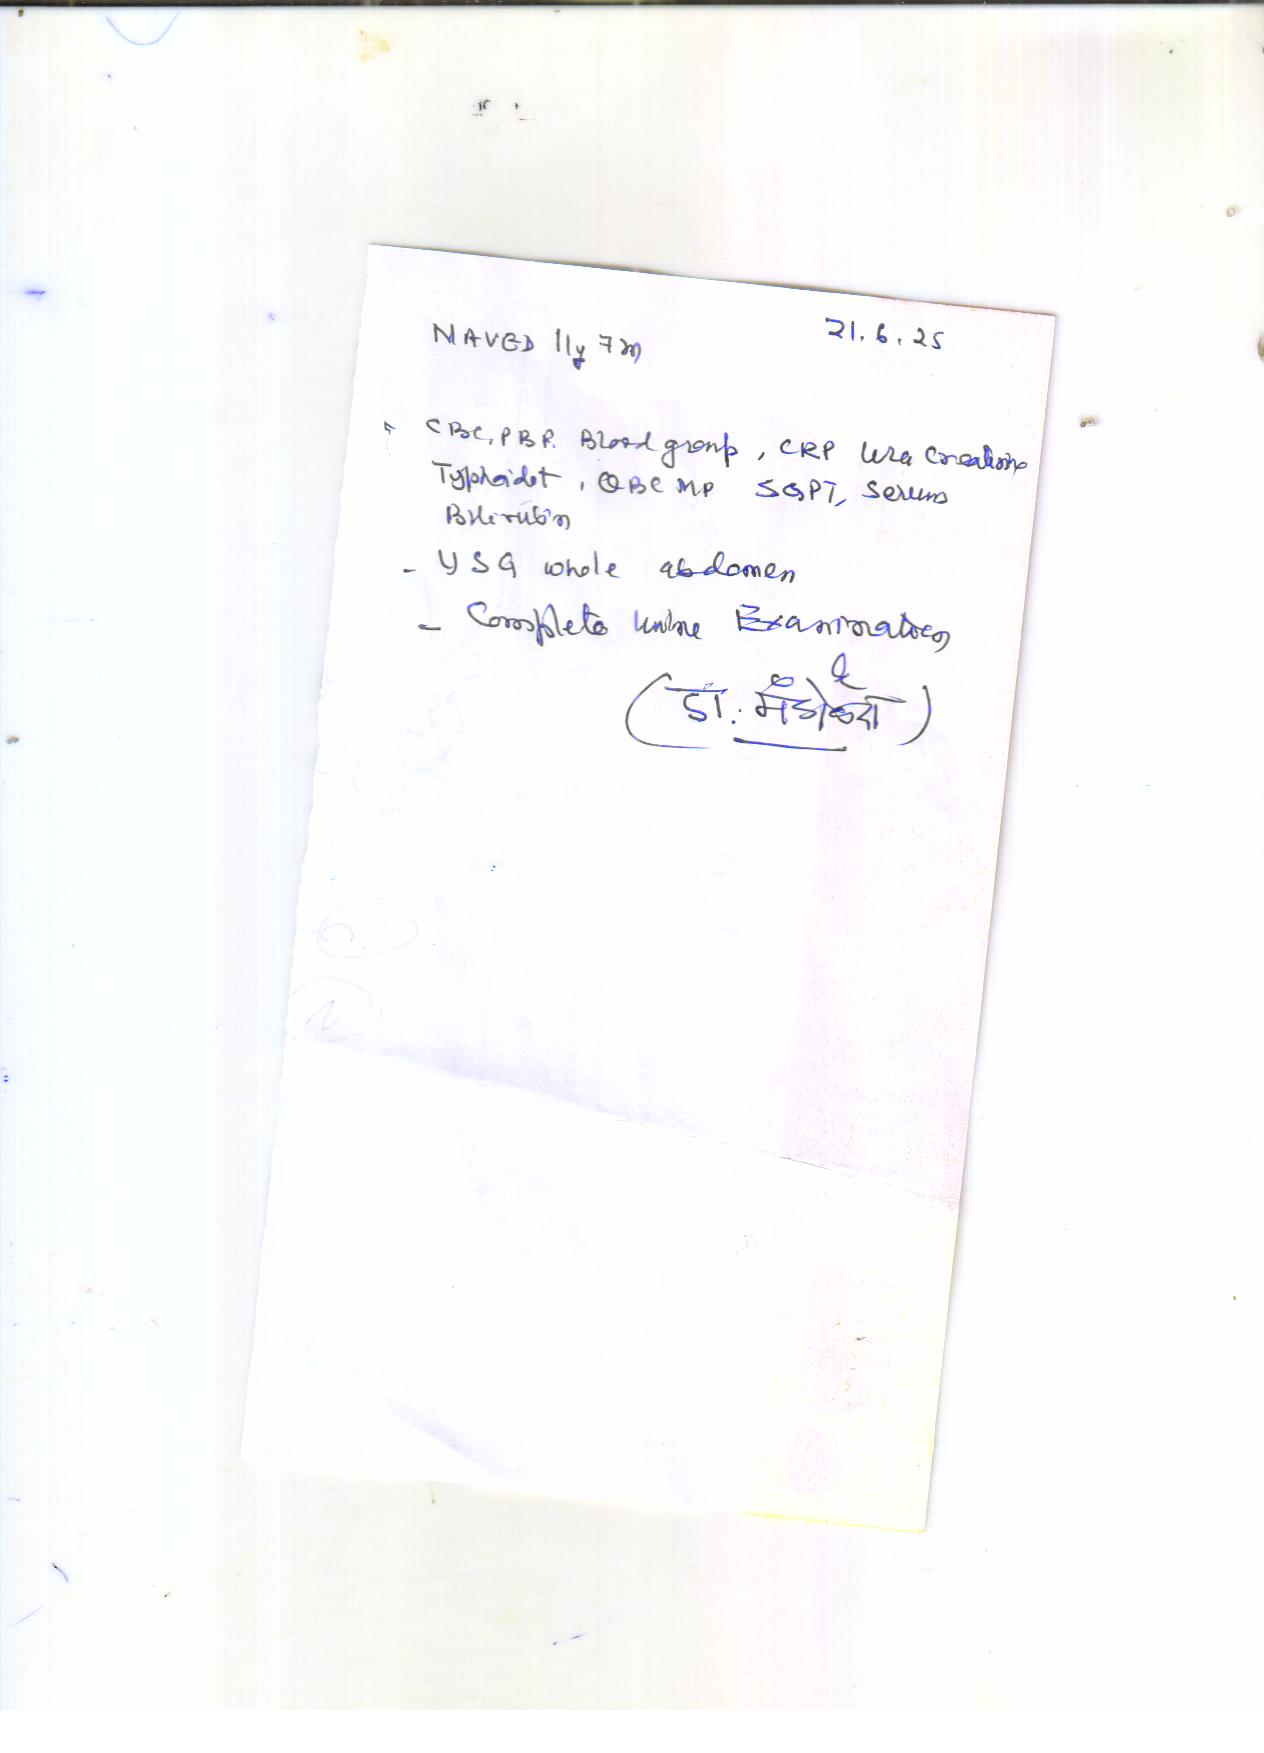 NAVED 11y 7m
21.6.25
CBC, PBF. Blood group, CRP Urea Creatinine
Typhidot, QBC MP SGPT, Serum
Bilirubin
- USG whole abdomen
- Complete Urine Examination
(डा.